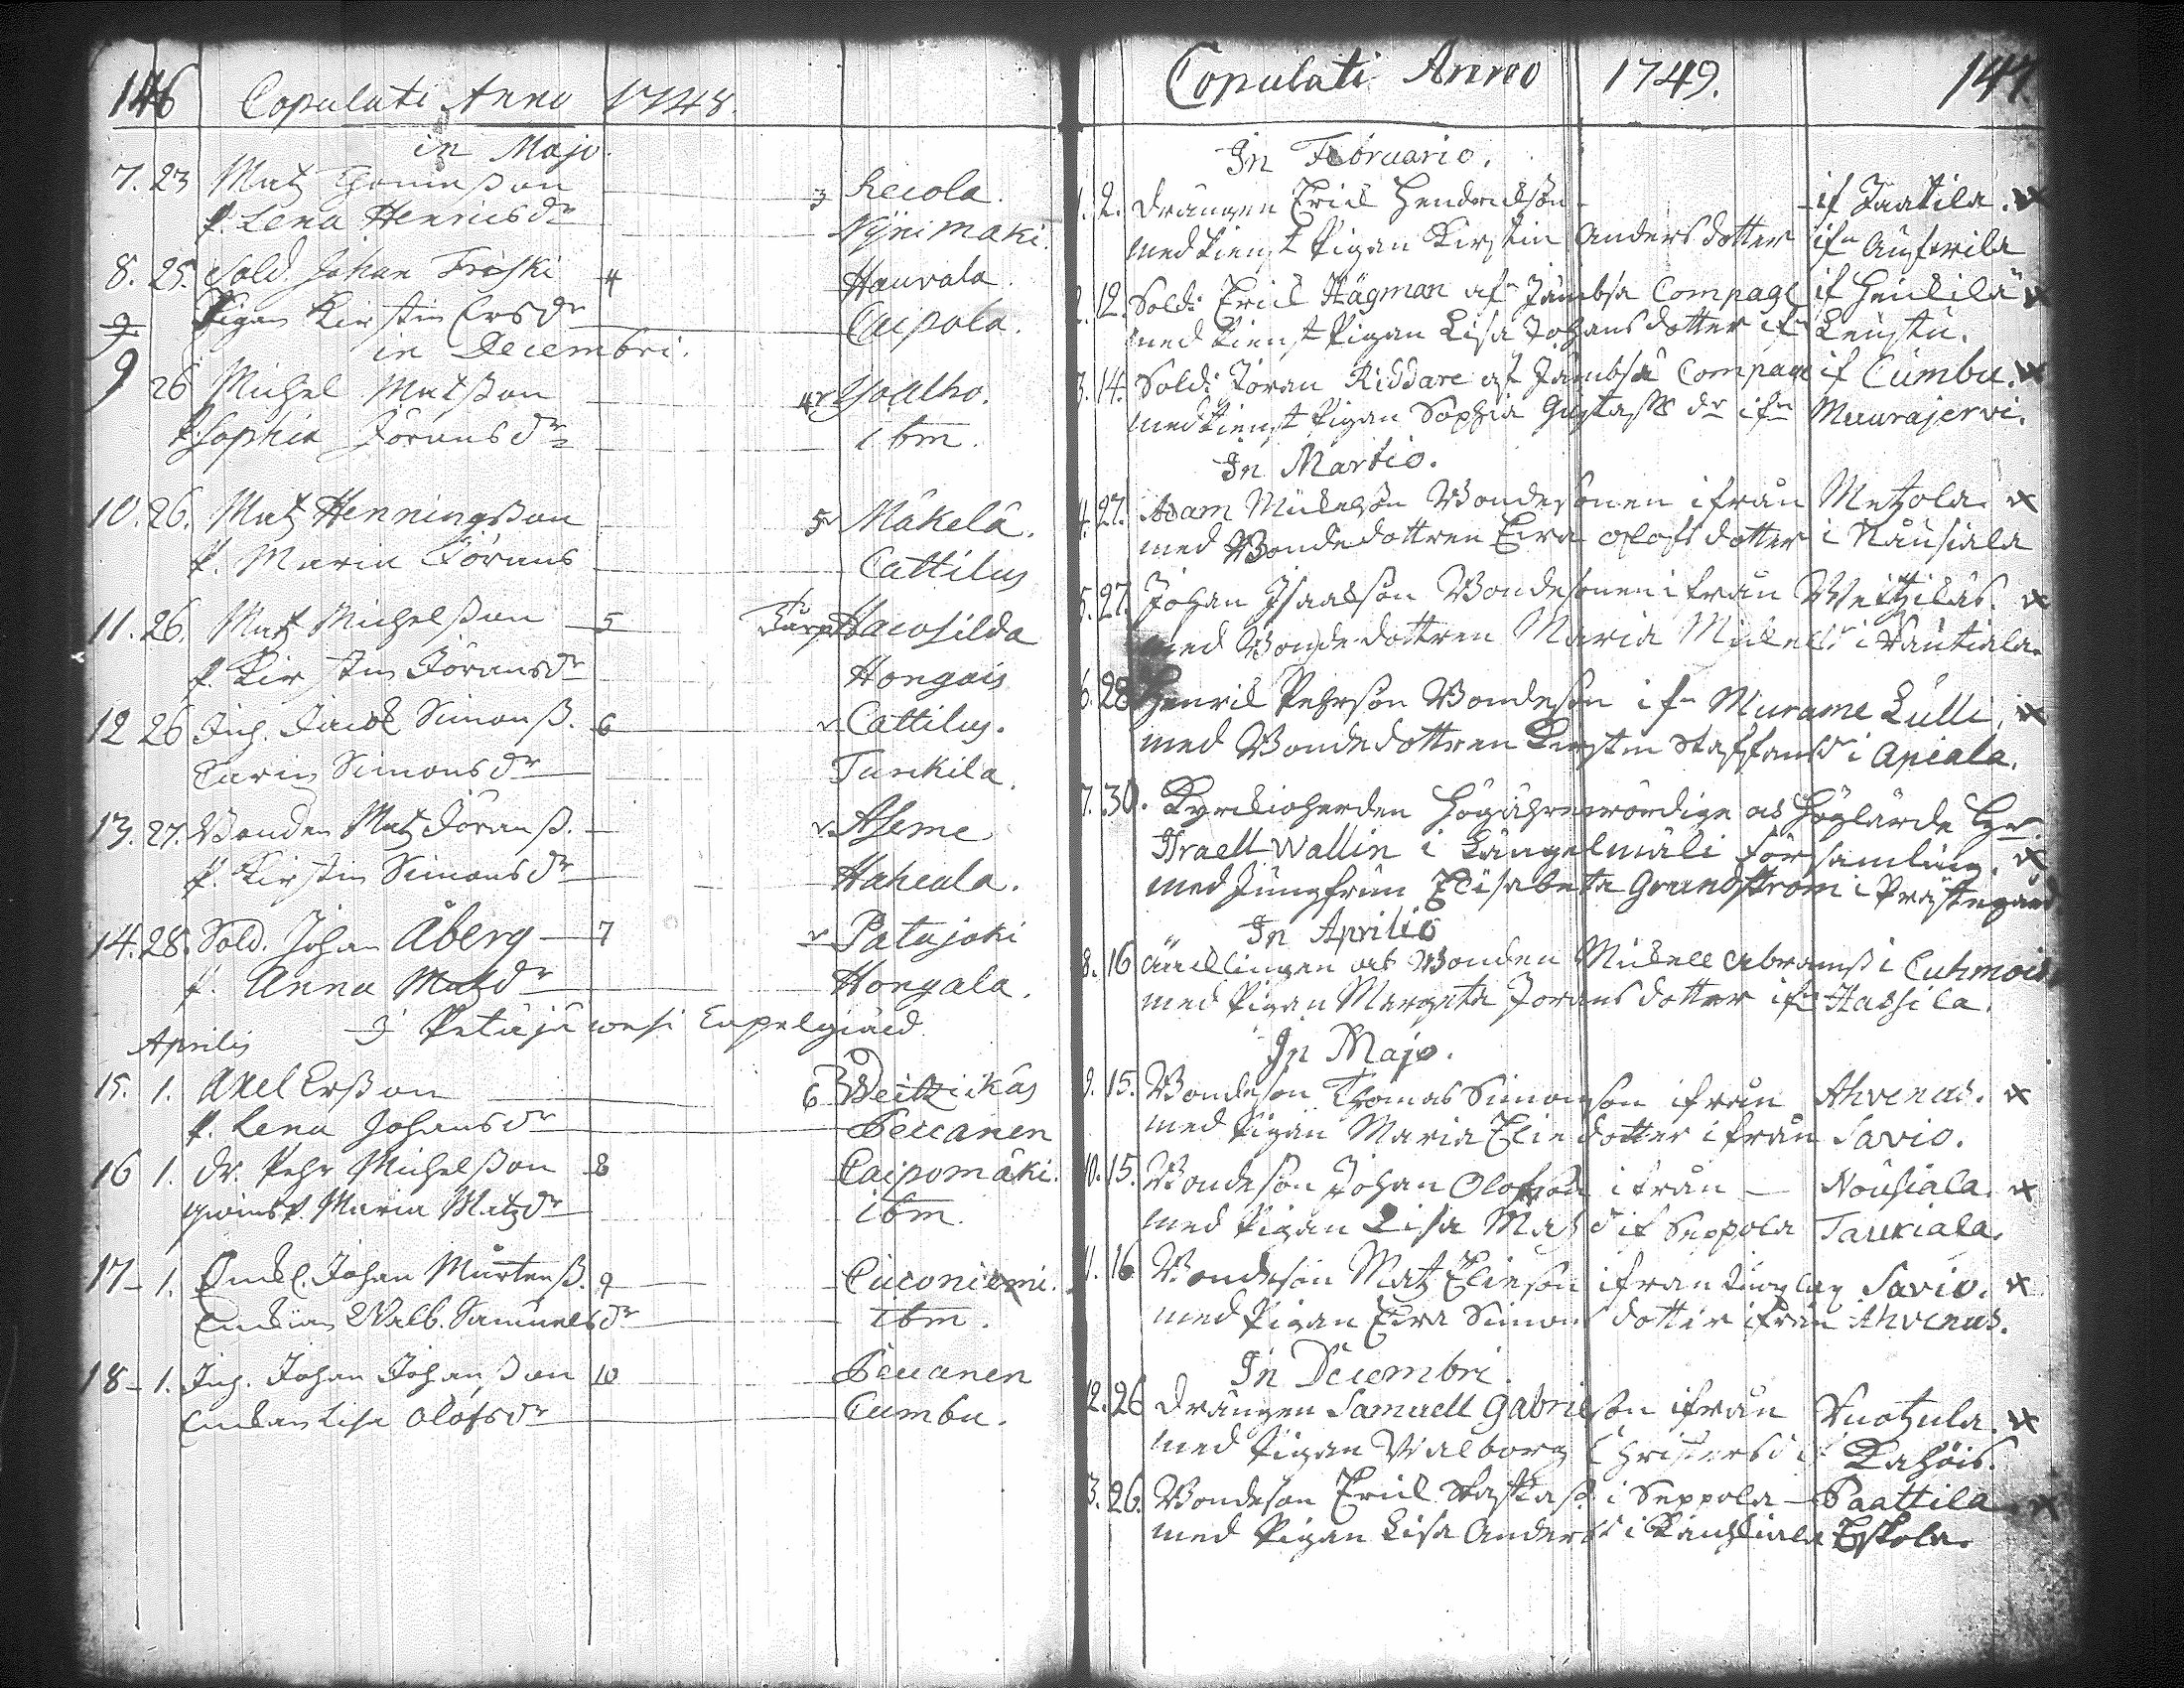 146 Copulati Anno 1748.
in Majo.
7. 23 Matz Thomasson 3 Recola.
p. Lena Henricsdr Nÿnimäki.
8. 25. Sold. Johan Friski 4 Hauvala.
Pigan Kirstin Ersdr Caipola.
in Decembri.
9 26 Michel Matsson Yoalho.
p. Sophia Jöransdr ibm.
10. 26. Matz Henningsson 5 Mäkelä.
p. Maria Jörans Cattilus
11. 26. Matz Michelsson 5 Hacosilda
p. Kirstin Jöransdr Hongois
12 26 Jnh. Jacob Simonss. 6 Cattilus.
Carin Simonsdr Turkila.
13. 27. Bonden Matz Jöranss. Aseme
p. Kirstin Simonsdr Haheala.
14. 28. Sold. Johan Åberg 7 Patajoki
p. Anna Matzdr Hongala.
Aprilis I Petäjäwesi Capelgiäld
15. 1. Axel Ersson 6 Weitzikäs
p. Lena Johansdr Peccanen
16 1. Dr. Pehr Michelsson 8 Caipomäki.
qwinsp. Maria Matzdr ibm.
17 1. Enckl. Johan Mårtenss. 9 Cuconiemi.
Enckian Walb. Samuelsdr ibm.
18 1. Jnh. Johan Johansson 10 Peccanen
Enckan Lisa Olofsdr Cumbu.
Copulati Anno 1749. 147.
In Februario.
1. 2. Drängen Eric Hendricson if Taatila.
med tienst Pigan Kirstin Andersdotter ifn
2. 12. Sold: Eric Hägman af Jämbsä Compagi if Heickilä
med tienst Pigan Lisa Johansdotter ifn Leustu.
3. 14. Sold: Jöran Riddare af Jämbsä Compagi if Cumbu.
med tienst Pigan Sophia Gustafs dr ifn Muurajervi.
In Martio.
4. 27. Adam Mickelson Bondesonen ifrån Metzola.
med Bondedottren Eva Olofsdotter i Nåusiala
5. 27. Johan Isaacson Bondesonen ifrån Weitzikäs.
med Bondedottren Maria Mickels. i
6. 28 Henric Pehrson Bondeson ifn Murame Lulli.
med Bondedottren Kirstin Staffansd i Apiala.
7. 30. Kyrckioherden Högährewördige och Höglärde Hr.
Israell Wallin i Längelmäki församling.
med Jungfrun Elisabeta Grundström i Prästegård
In Aprilis
8. 16 Änklingen och Bonden Mickell Abramss i Cuhmois
med Pigan Margeta Joransdotter ifn Hassila.
In Majo.
9. 15. Bondeson Thomas Simonson ifrån Ahvenus.
med Pigan Maria Eliedotter ifrån Savio.
10. 15. Bondeson Johan Olofson ifrån Nousiala.
med Pigan Lisa Matsd if Seppola Tauriala.
11. 16 Bondeson Matz Elieson ifrån Savio.
med Pigan Eva Simonsdotter ifrån Ahvenus.
In Decembri.
12. 26 Drängen Samuell Gabrielson ifrån Vuotzula.
med Pigan Walborg Christersd if Kahöis.
13. 26. Bondeson Eric i Seppola Paattila
med Pigan Lisa Anders i Eskola.